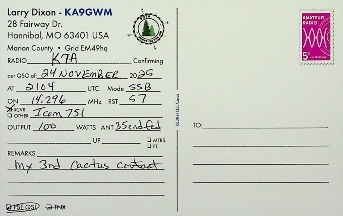 Larry Dixon - KA9GWM
28 Fairway Dr.
Hannibal, MO 63401 USA
Marion County • Grid EM49hq
RADIO K7A Confirming
our QSO of: 24 NOVEMBER 2025
AT 2104 UTC. Mode SSB
ON 14.296 MHz RST 57
XCVR
OTHER Icom 751
OUTPUT 100 WATTS ANT 35 end fed
UP MTRS
FT
REMARKS
My 3rd Cactus contact
PSE QSL TNX
AMATEUR
RADIO
5¢
TO: